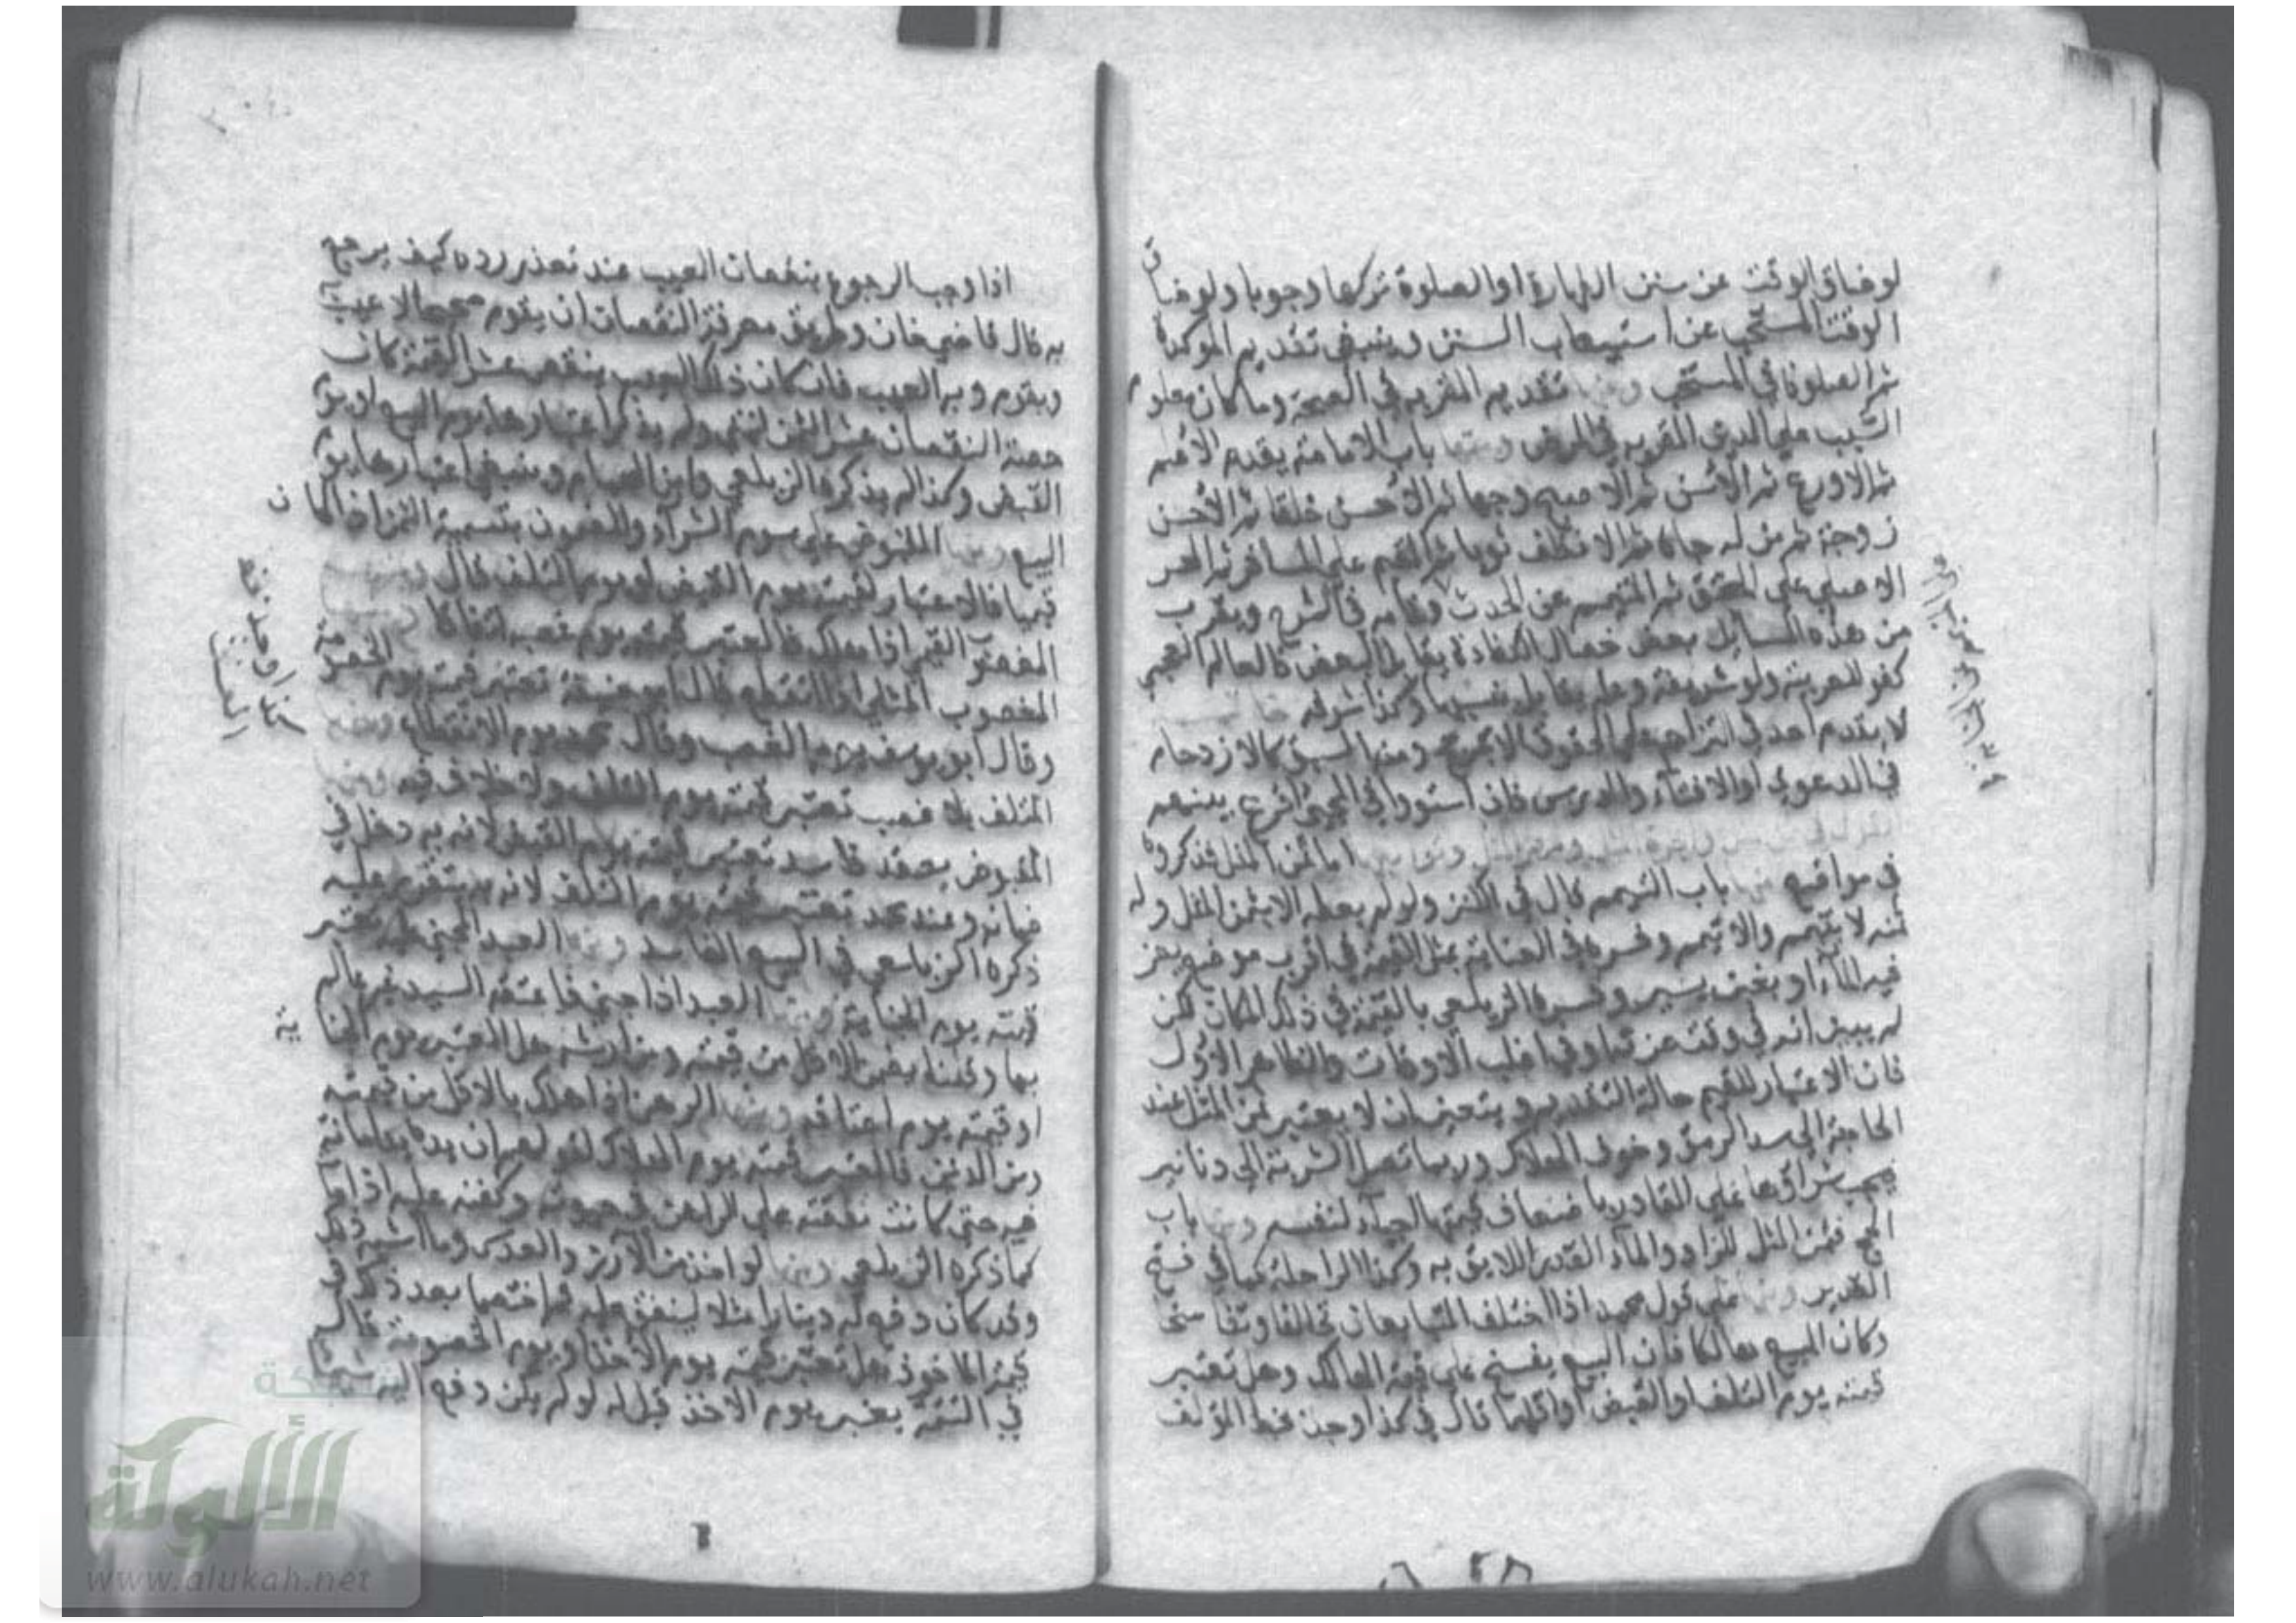 لو ضاق الوقت عن سنن الطهارة او الصلوة تركها وجوبا ولو ضاق
الوقت المستحب عن استيعاب السنن وينبغي تقديم الموكدة
ثم الصلوة في المستحب ومنها تقديم المقر به في الصحة وما كان معلوم
السبب على الدين المقر به في المرض ومنها باب الامامة يقدم الاعلم
ثم الاورع ثم الاسن ثم الاصبح وجها ثم الاحسن خلقا ثم الاحسن
زوجة ثم من له جاه ثم الانظف ثوبا ثم المقيم على المسافر ثم الحر
الاصلي على المعتق ثم المتيمم عن الحدث وتمامه في الشرح ويقرب
من هذه المسايل بعض خصال الكفاءة يقابل البعض فالعالم العجمي
كفو للعربية ولو شريفة وعلمه يقابل نسبها وكذا شرفه
لا يقدم احد في التزاحم على الحقوق الا بمرجح ومنها السبق كالازدحام
في الدعوى او الافتاء والدرس فان استووا في المجئ اقرع بينهم
اما ثمن المثل فذكروه
في مواضع منها باب التيمم قال في الكنز ولو لم يعطه الا بثمن المثل وله
ثمنه لا يتيمم والا تيمم وفسره في العناية بمثل القيمة في اقرب موضع يعز
فيه الماء او بغبن يسير وفسره الزيلعي بالقيمة في ذلك المكان لكن
لم يبين انه في وقت عزته او في اغلب الاوقات والظاهر الاول
فان الاعتبار للقيم حالة التقدير ويتعين ان لا يعتبر ثمن المثل عند
الحاجة الى سد الرمق وخوف الهلاك وربما تصل الشربة الى دنانير
يجب شراؤها على القادر باضعاف قيمتها احياء لنفسه ومنها باب
الحج فثمن المثل للزاد والماء القدر اللايق به وكذا الراحلة كما في فتح
القدير ومنها على قول محمد اذا اختلف المتبايعان تحالفا وتفاسخا
وكان المبيع هالكا فان البيع يفسخ على قيمة الهالك وهل تعتبر
قيمته يوم التلف او القبض او اقلهما قال في كذا وجدت بخط المؤلف
اذا وجب الرجوع بنقصان العيب عند تعذر رده كيف يرجع
به قال قاضي خان وطريق معرفة النقصان ان يقوم صحيحا لا عيب به
ويقوم وبه العيب فان كان ذلك العيب ينقص عشر القيمة كان
حصة النقصان عشر الثمن انتهى ولم يذكر اعتبارها يوم البيع او يوم
القبض وكذا لم يذكره الزيلعي وابن الهمام وينبغي اعتبارها يوم
البيع ومنها المقبوض على سوم الشراء والمضمون بتسمية الثمن اذا كان
قيميا فالاعتبار لقيمته يوم القبض او يوم التلف قال ومنها
المغصوب القيمي اذا هلك فالمعتبر قيمته يوم غصبه اتفاقا ومنها
المغصوب المثلي اذا انقطع قال ابو حنيفة تعتبر قيمته يوم الخصومة
وقال ابو يوسف يوم الغصب وقال محمد يوم الانقطاع ومنها
المتلف بلا غصب تعتبر قيمته يوم التلف ولا خلاف فيه ومنها
المقبوض بعقد فاسد تعتبر قيمته يوم القبض لانه به دخل في
ضمانه وعند محمد تعتبر قيمته يوم التلف لانه به يتقرر عليه
ذكره الزيلعي في البيع الفاسد ومنها العبد المجني عليه تعتبر
قيمته يوم الجناية ومنها العبد اذا جنى فاعتقه السيد غير عالم
بها وقلنا يضمن الاقل من قيمته ومن ارشه هل المعتبر يوم الجناية
او قيمته يوم اعتاقه ومنها الرهن اذا هلك بالاقل من قيمته
ومن الدين فالمعتبر قيمته يوم الهلاك لقولهم ان يده يد امانة
فيه حتى كانت نفقته على الراهن في حيوته وكفنه عليه اذا مات
كما ذكره الزيلعي ومنها لو اخذ من الارز والعدس وما اشبه ذلك
وقد كان دفع له دينارا مثلا لينفق عليه ثم اختصما بعد ذلك في
قيمة الماخوذ هل تعتبر قيمته يوم الاخذ او يوم الخصومة قال
في التتمة يعتبر يوم الاخذ قيل له لو لم يكن دفع اليه شيئا
كذا وجد بخطه